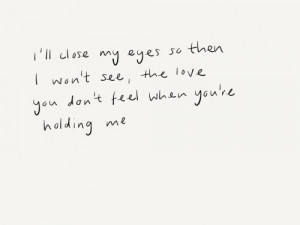 i'll close my eyes so then
I won't see, the love
you don't feel when you're
holding me